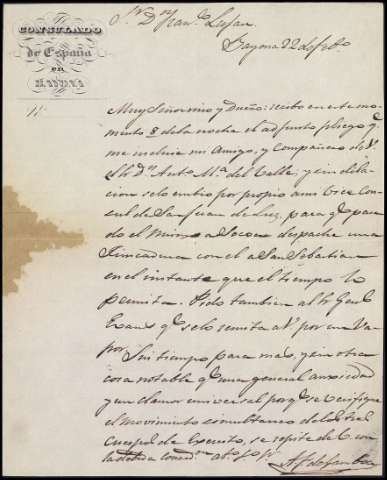 Sr. Dn. Franco. Lujan
CONSULADO
de España
en
Bayona 22 de febo
Muy Señor mio y Dueño: recibo en este mo-
mento 8 de la noche el adjunto pliego qe
me incluia mi Amigo, y Compañero de V.
Dn Anto Ma del Valle, y sin dila-
cion se lo embio por propio a mi Vice Con-
sul de San Juan de Luz, para qe pasan-
do el mismo a Socoa despache una
Trincadura con el a San Sebastian
en el instante que el tiempo lo
permita. Pido tambien al Sr Genl
Evans qe se lo remita a V. por un Va-
por.
Sin tiempo para mas, y sin otra
cosa notable qe una general ansiedad
y un clamor universal porqe se verifique
el movimiento simultaneo de los tres
Cuerpos de Exercito, se repite de V. con
la debida consideron. ato. 
A. F. de Gamboa